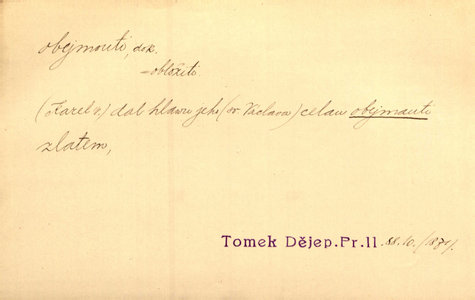 obejmouti, dok.
-obložiti
(Karel v.) dal hlavu jeho (sv. Václava) celau obejmauti
zlatem,
Tomek Dějep. Pr. II 88.10. (1871).